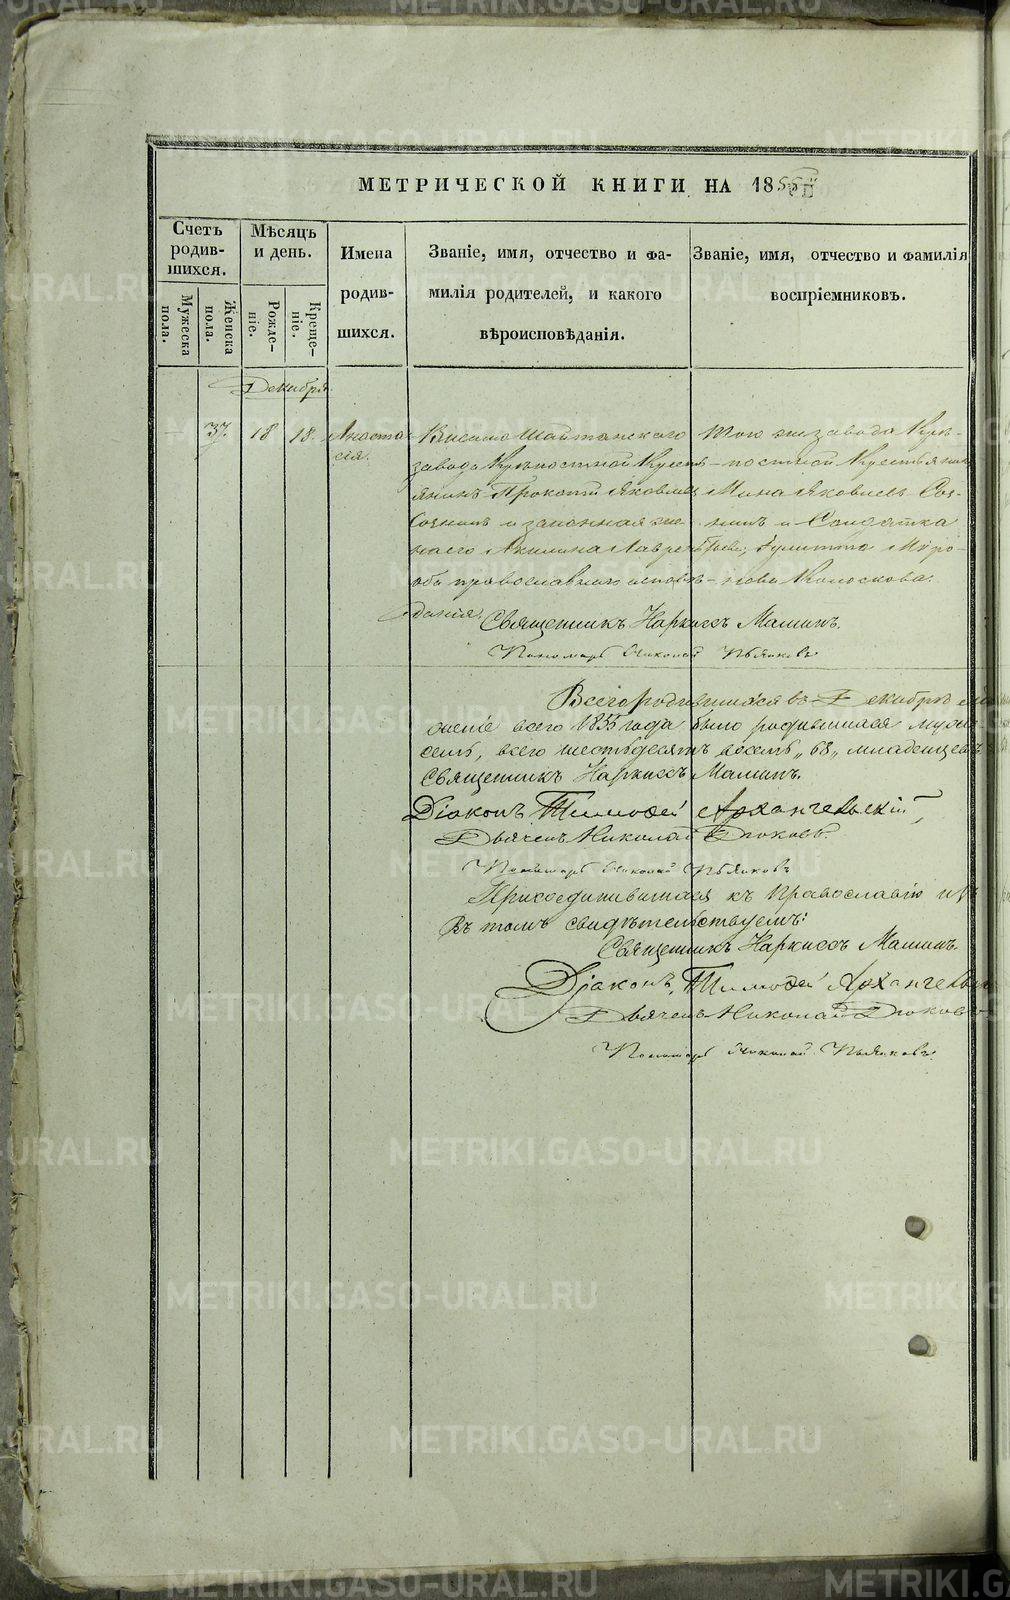 METRIKI.GASO-URAL.RU
МЕТРИЧЕСКОЙ КНИГИ НА 1855й
Счетъ родив-шихся.
Мужеска пола.
Женска пола.
Мѣсяцъ и день.
Рожде-ніе.
Креще-ніе.
Имена
родив-
шихся.
Званіе, имя, отчество и фа-
милія родителей, и какого
вѣроисповѣданія.
Званіе, имя, отчество и фамилія
воспріемниковъ.
Декабря
37. 18 18. Анаста-
сія.
Шайтанскаго
завода Крѣпостной Кресть-
янинъ Прокопій Яковлевъ
и законная же-
на его Акилина Лаврентьева,
оба православнаго исповѣ-
данія.
Того же завода Крѣ-
постной Крестьянинъ
Яковлевъ
и Солдатка
Колоскова.
Священникъ Наркисъ Маминъ.
Пономарь Николай
Всего родившихся въ Декабрѣ
всего 1855 года было родившихся
всего шестьдесятъ восемь „68„ младенцевъ
Священникъ Наркисъ Маминъ.
Діаконъ Тимофей Архангельскій
Дьячекъ Николай Дюковъ.
Пономарь Николай
Присоединившихся къ Православію
Въ томъ свидѣтельствуемъ:
Священникъ Наркисъ Маминъ.
Діаконъ Тимофей Архангельскій
Дьячекъ Николай Дюковъ
Пономарь Николай